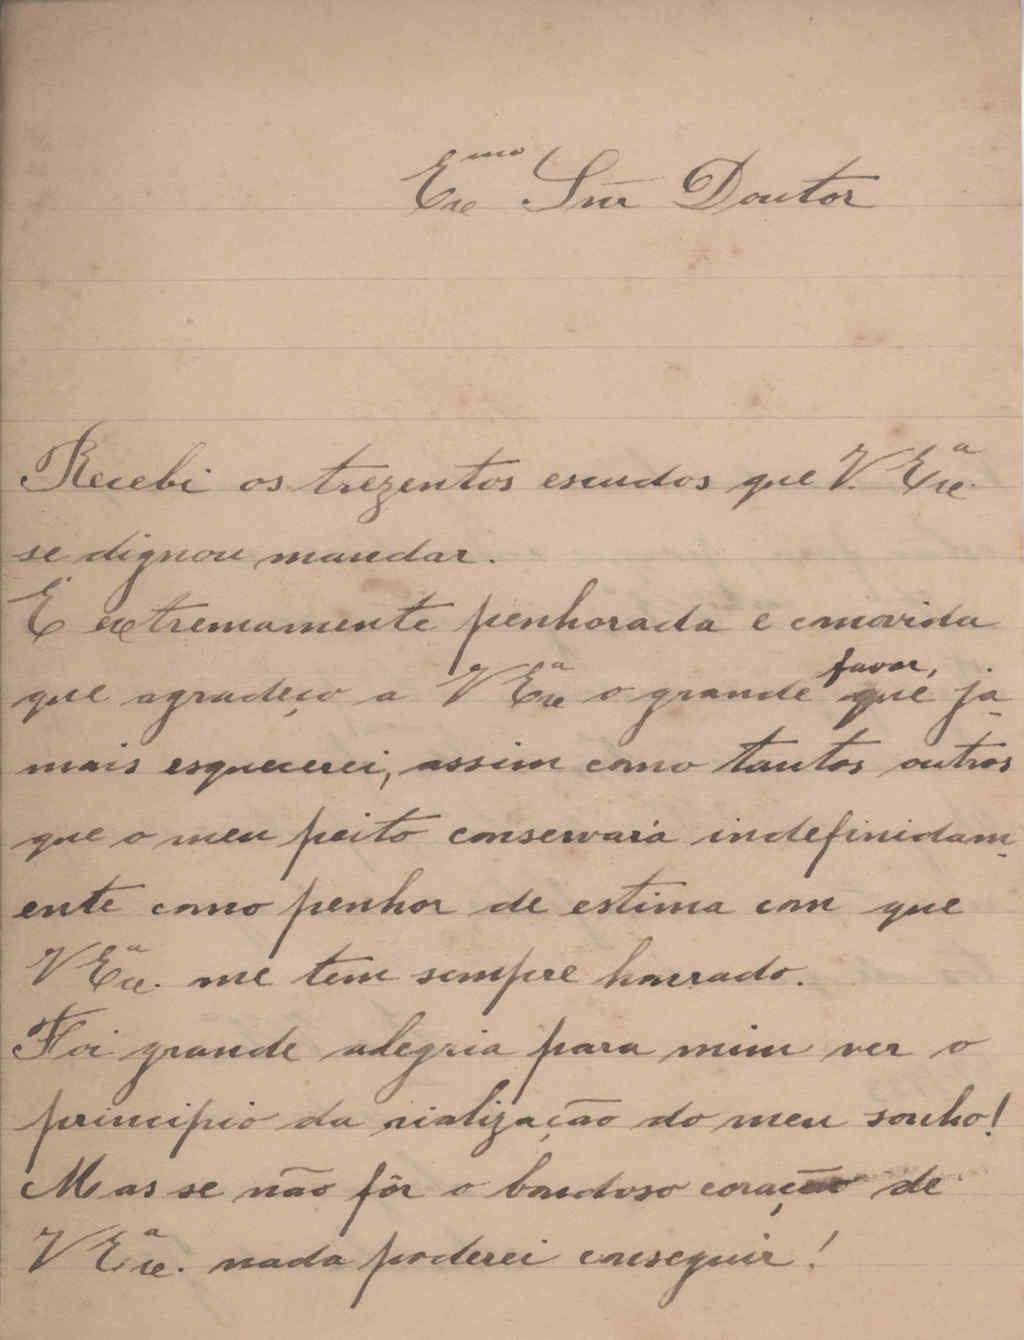 Exc.mo Snr Doutor
Recebi os trezentos escudos que V. Exc.a
se dignou mandar.
É extremamente penhorada e comovida
que agradeço a V Exc.a o grande favor, que ja-
mais esquecerei, assim como tantos outros
que o meu peito conservará indefinidam-
ente como penhor de estima com que
V Exc.a me tem sempre honrado.
Foi grande alegria para mim ver o
principio da rialização do meu sonho!
Mas se não fôr o bondoso coração de
V Exc.a nada poderei conseguir!